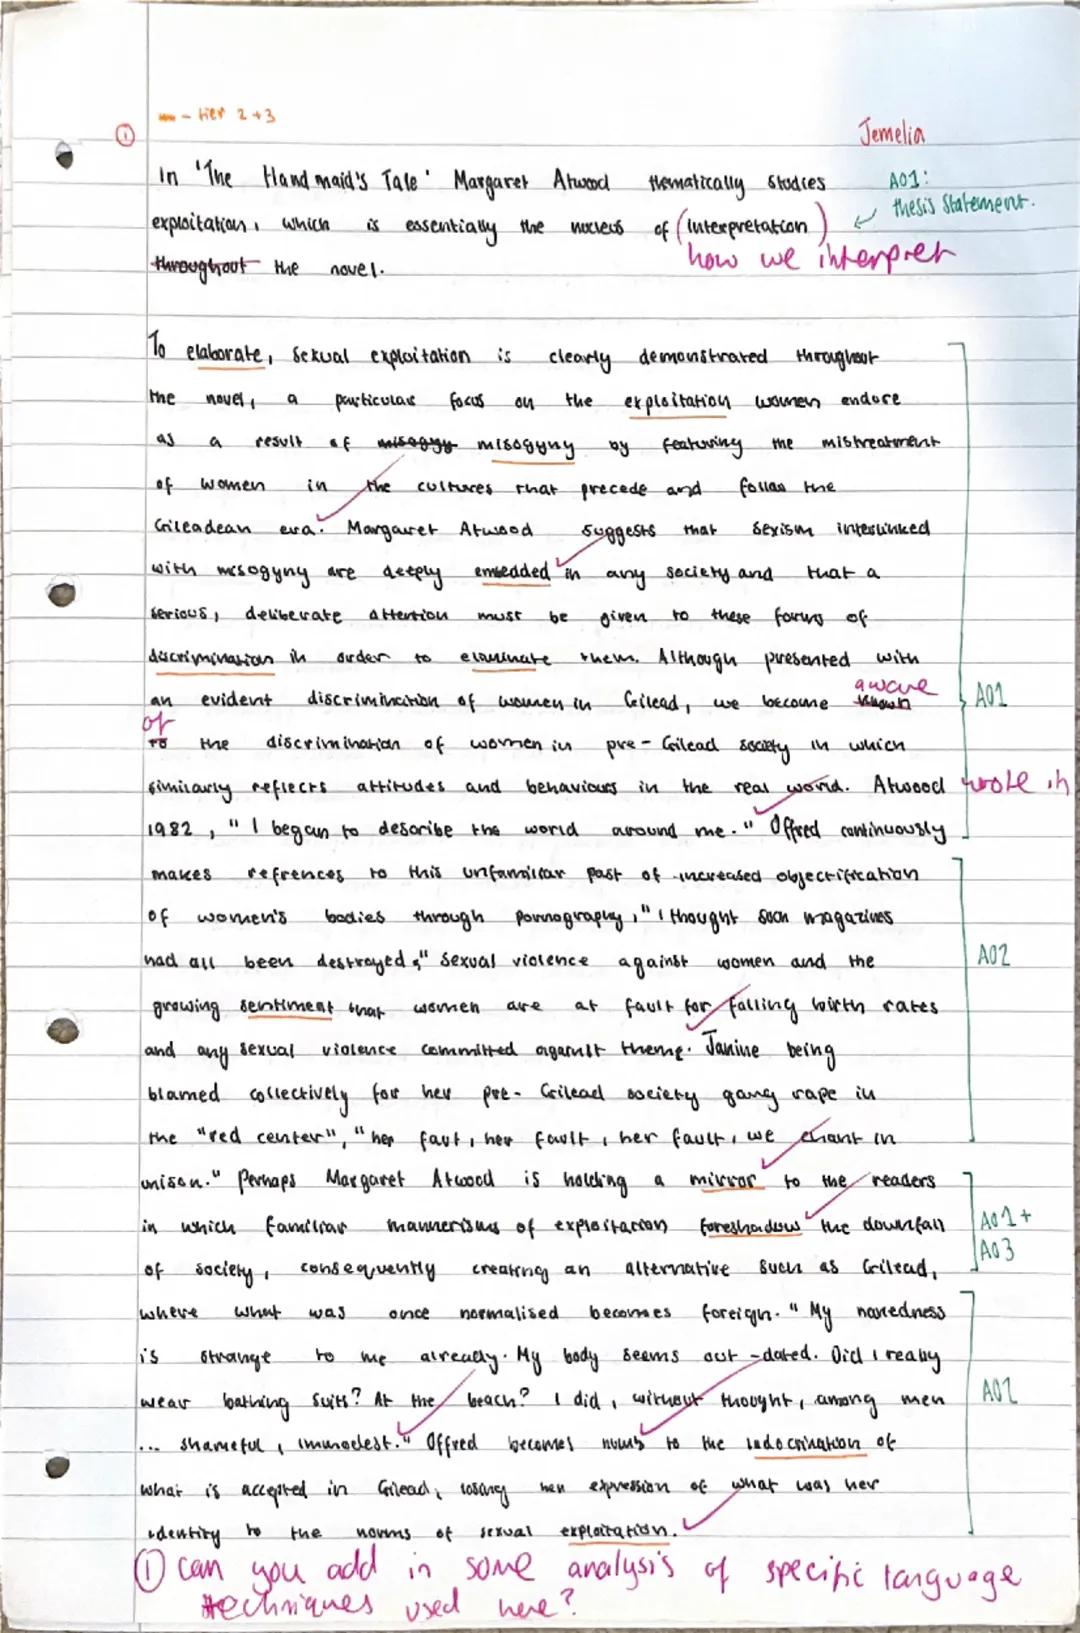 - tier 2+3
①
Jemelia
In 'The Handmaid's Tale' Margaret Atwood thematically studies
A01:
thesis statement.
exploitation, which is essentially the nucleus of (interpretation)
how we interpret
throughout the novel.
To elaborate, sexual exploitation is clearly demonstrated throughout
the novel, a particular focus on the exploitation women endure
as a result of misogyny by featuring the mistreatment
of women in the cultures that precede and follow the
Gileadean era. Margaret Atwood suggests that sexism interlinked
with misogyny are deeply embedded in any society and that a
serious, deliberate attention must be given to these forms of
discrimination in order to eliminate them. Although presented with
an evident discrimination of women in Gilead, we become known
aware
A01
of
to the discrimination of women in pre-Gilead society in which
similarly reflects attitudes and behaviours in the real world. Atwood wrote in
1982, "I began to describe the world around me." Offred continuously
makes refrences to this unfamiliar past of increased objectification
of women's bodies through pornography, "I thought such magazines
had all been destroyed," sexual violence against women and the
A02
growing sentiment that women are at fault for falling birth rates
and any sexual violence committed against them. Janine being
blamed collectively for her pre-Gilead society gang rape in
the "red center", "her faut, her fault, her fault, we chant in
unison." Perhaps Margaret Atwood is holding a mirror to the readers
in which familiar mannerisms of exploitation foreshadow the downfall
A01+
A03
of society, consequently creating an alternative such as Gilead,
where what was once normalised becomes foreign. "My nakedness
is strange to me already. My body seems out-dated. Did I really
wear bathing suits? At the beach? I did, without thought, among men
A02
... shameful, immodest." Offred becomes numb to the indocrination of
what is accepted in Gilead, losing her expression of what was her
identity to the norms of sexual exploitation.
① can you add in some analysis of specific language
techniques used here?